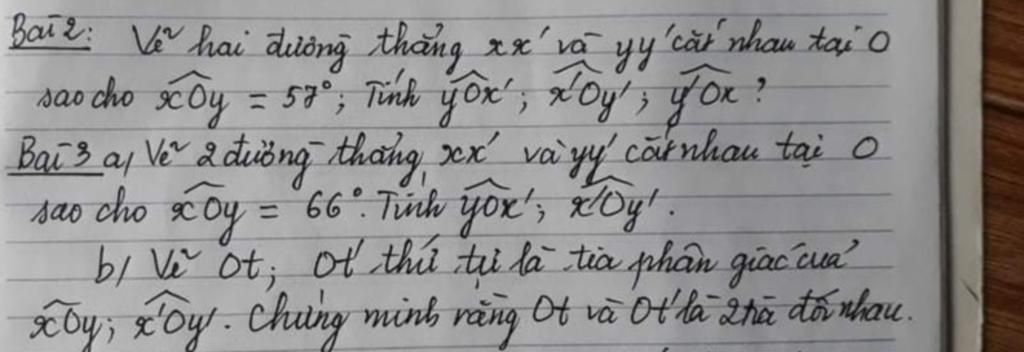 Bài 2: Vẽ hai đường thẳng xx' và yy' cắt nhau tại O
sao cho xOy = 57°; Tính yOx'; x'Oy'; y'Ox?
Bài 3 a, Vẽ 2 đường thẳng xx' và yy' cắt nhau tại O
sao cho xOy = 66°. Tính yOx'; x'Oy'.
b/ Vẽ Ot; Ot' thứ tự là tia phân giác của
xOy; x'Oy'. Chứng minh rằng Ot và Ot' là 2 tia đối nhau.